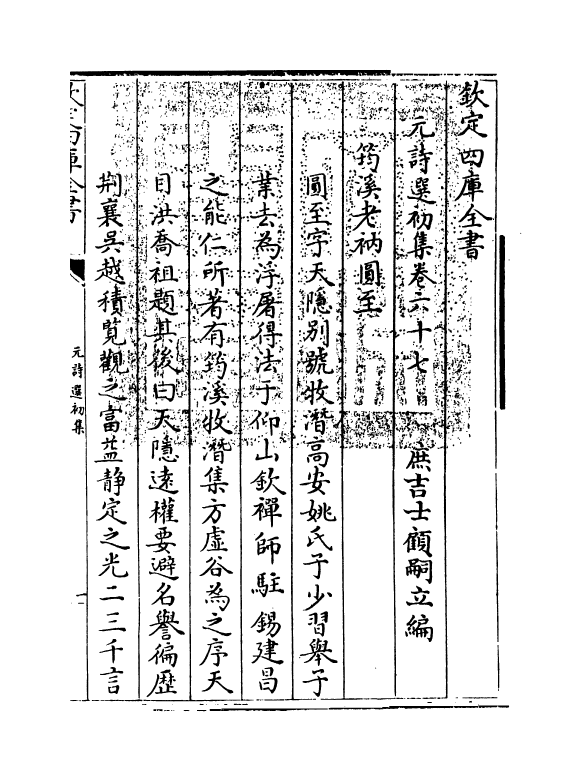 欽定四庫全書
元詩選初集卷六十七
庶吉士顧嗣立編
筠溪老衲圓至
圓至字天隱别號牧潛高安姚氏子少習舉子
業去為浮屠得法于仰山欽禪師駐錫建昌
之能仁所著有筠溪牧潛集方虛谷為之序天
目洪喬祖題其後曰天隱遠權要避名譽徧歷
荆襄吳越積覧觀之富益静定之光二三千言
欽定四庫全書
元詩選初集
一